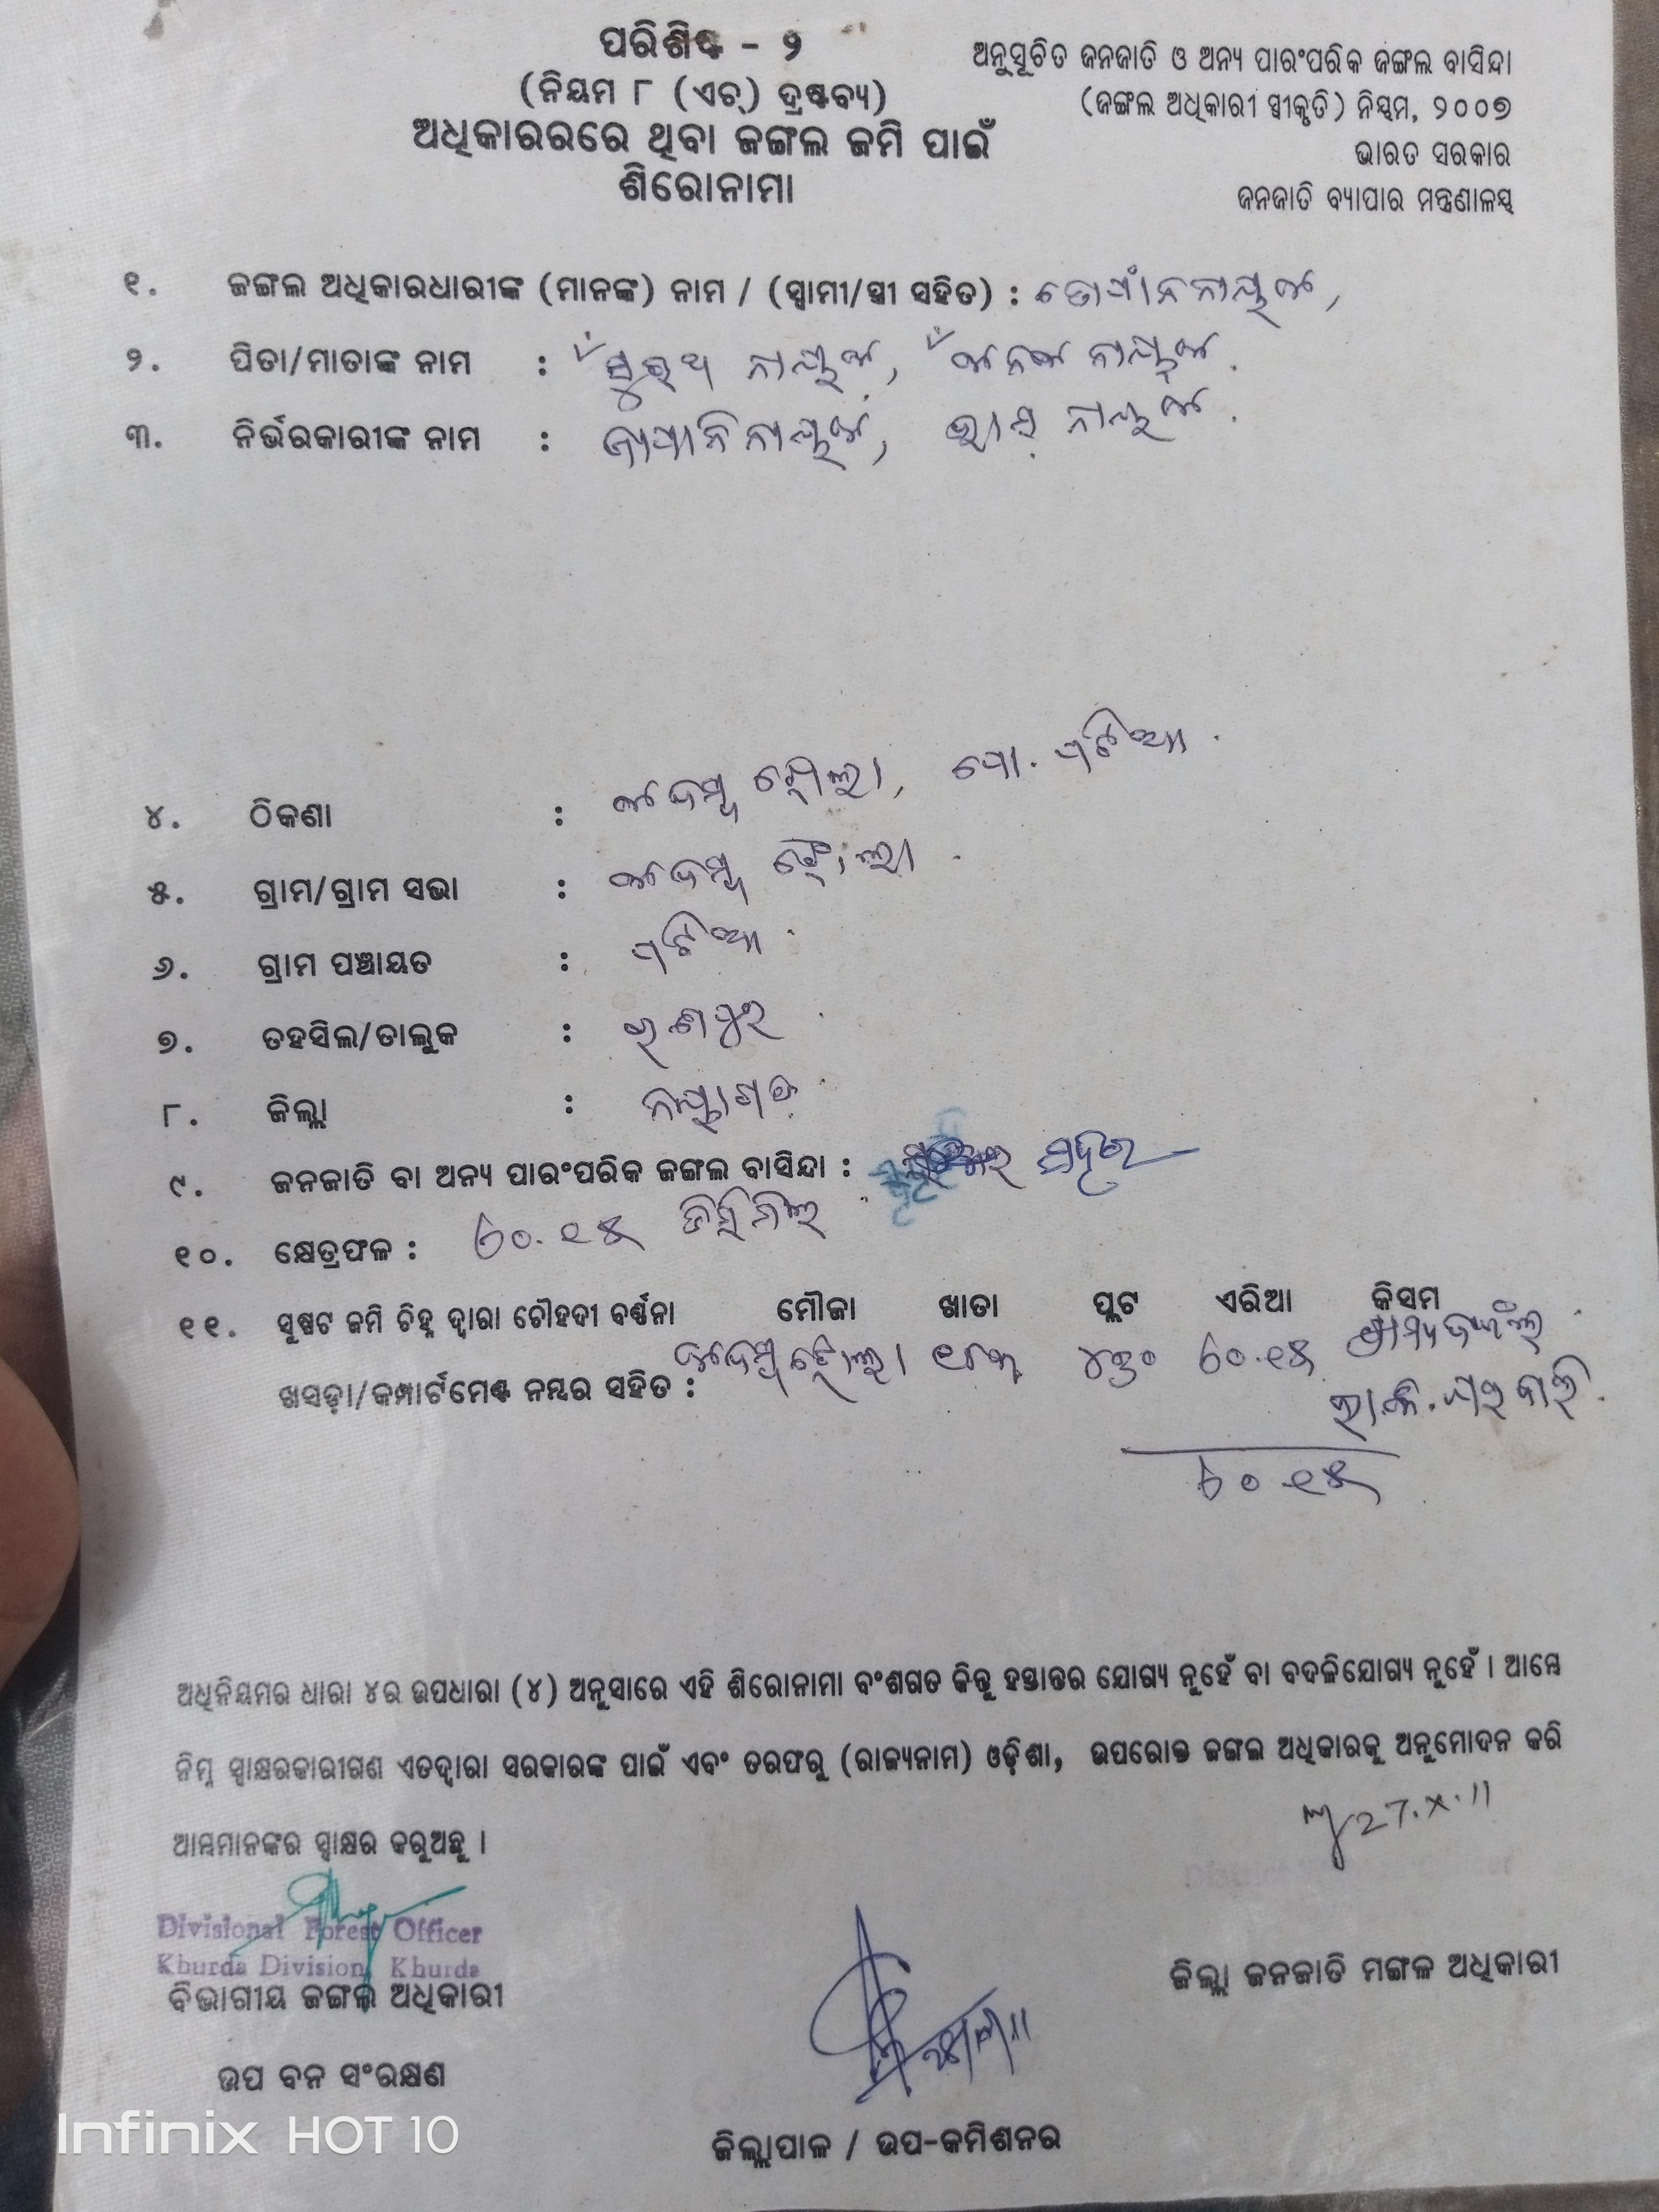 ପରିଶିଷ୍ଟ - ୨
(ନିୟମ ୮ (ଏଚ୍) ଦ୍ରଷ୍ଟବ୍ୟ)
ଅଧିକାରରରେ ଥିବା ଜଙ୍ଗଲ ଜମି ପାଇଁ
ଶିରୋନାମା
ଅନୁସୂଚିତ ଜନଜାତି ଓ ଅନ୍ୟ ପାରଂପରିକ ଜଙ୍ଗଲ ବାସିନ୍ଦା
(ଜଙ୍ଗଲ ଅଧିକାରୀ ସ୍ୱୀକୃତି) ନିୟମ, ୨୦୦୭
ଭାରତ ସରକାର
ଜନଜାତି ବ୍ୟାପାର ମନ୍ତ୍ରଣାଳୟ
୧. ଜଙ୍ଗଲ ଅଧିକାରଧାରୀଙ୍କ (ମାନଙ୍କ) ନାମ / (ସ୍ୱାମୀ/ସ୍ତ୍ରୀ ସହିତ) :
୨. ପିତା/ମାତାଙ୍କ ନାମ : ସୁରଥ ନାୟକ, ନାୟକ.
୩. ନିର୍ଭରକାରୀଙ୍କ ନାମ : ନାୟକ.
୪. ଠିକଣା : କଦମ୍ବ ଝୋଲା, ପୋ.
୫. ଗ୍ରାମ/ଗ୍ରାମ ସଭା : କଦମ୍ବ ଝୋଲା
୬. ଗ୍ରାମ ପଞ୍ଚାୟତ :
୭. ତହସିଲ/ତାଲୁକ : ରଣପୁର
୮. ଜିଲ୍ଲା : ନୟାଗଡ଼
୯. ଜନଜାତି ବା ଅନ୍ୟ ପାରଂପରିକ ଜଙ୍ଗଲ ବାସିନ୍ଦା :
୧୦. କ୍ଷେତ୍ରଫଳ : ୬୦.୧୫ ଡିସିମିଲ
୧୧. ସୁଷଟ ଜମି ଚିହ୍ନ ଦ୍ୱାରା ଚୌହଦୀ ବର୍ଣ୍ଣନା ମୌଜା ଖାତା ପ୍ଲଟ ଏରିଆ କିସମ
କଦମ୍ବ ଝୋଲା ୬୦.୧୫ ଗ୍ରାମ୍ୟ ଜଙ୍ଗଲ
ଖସଡ଼ା/କମ୍ପାର୍ଟମେଣ୍ଟ ନମ୍ବର ସହିତ :
୬୦.୧୫
ଅଧିନିୟମର ଧାରା ୪ର ଉପଧାରା (୪) ଅନୁସାରେ ଏହି ଶିରୋନାମା ବଂଶଗତ କିନ୍ତୁ ହସ୍ତାନ୍ତର ଯୋଗ୍ୟ ନୁହେଁ ବା ବଦଳିଯୋଗ୍ୟ ନୁହେଁ । ଆମ୍ଭେ
ନିମ୍ନ ସ୍ୱାକ୍ଷରକାରୀଗଣ ଏତଦ୍ୱାରା ସରକାରଙ୍କ ପାଇଁ ଏବଂ ତରଫରୁ (ରାଜ୍ୟନାମ) ଓଡ଼ିଶା, ଉପରୋକ୍ତ ଜଙ୍ଗଲ ଅଧିକାରକୁ ଅନୁମୋଦନ କରି
ଆମ୍ଭମାନଙ୍କର ସ୍ୱାକ୍ଷର କରୁଅଛୁ ।
27.X.11
Divisional Forest Officer
Khurda Division, Khurda
ବିଭାଗୀୟ ଜଙ୍ଗଲ ଅଧିକାରୀ
ଜିଲ୍ଲା ଜନଜାତି ମଙ୍ଗଳ ଅଧିକାରୀ
ଉପ ବନ ସଂରକ୍ଷଣ
ଜିଲ୍ଲାପାଳ / ଉପ-କମିଶନର
Infinix HOT 10